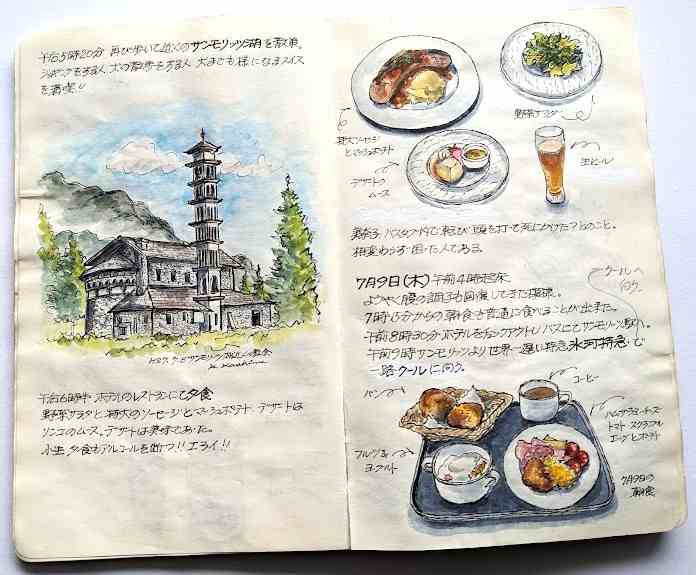 午后5時20分 再び歩いて近くのサンモリッツ湖を散策。
ジョギングをする人、犬の散歩をする人 犬までも様になるスイス
を満喫!!
サンモリッツ湖近くの教会
午后6時半 ホテルのレストランにて夕食
野菜サラダと特大のソーセージとマッシュポテト、デザートは
リンゴのムース、デザートは美味であった。
小生 夕食もアルコールを断つ!! エライ!!
特大ソーセージ
とマッシュポテト
野菜サラダ
デザートの
ムース
生ビール
バスタブ内で転び 頭を打って死にかけた?とのこと。
相変わらず困った人である。
クールへ
向う。
7月9日(木) 午前4時起床
ようやく腹の調子も回復してきた模様。
7時15分からの朝食も普通に食べることが出来た。
午前8時30分 ホテルをチェックアウトし バスにてサンモリッツ駅へ。
午前9時 サンモリッツより世界一遅い特急 氷河特急で
一路 クールに向う。
パン
コーヒー
ハム サラミ チーズ
トマト スクランブル
エッグとポテト
フルーツ&
ヨーグルト
7月9日の
朝食